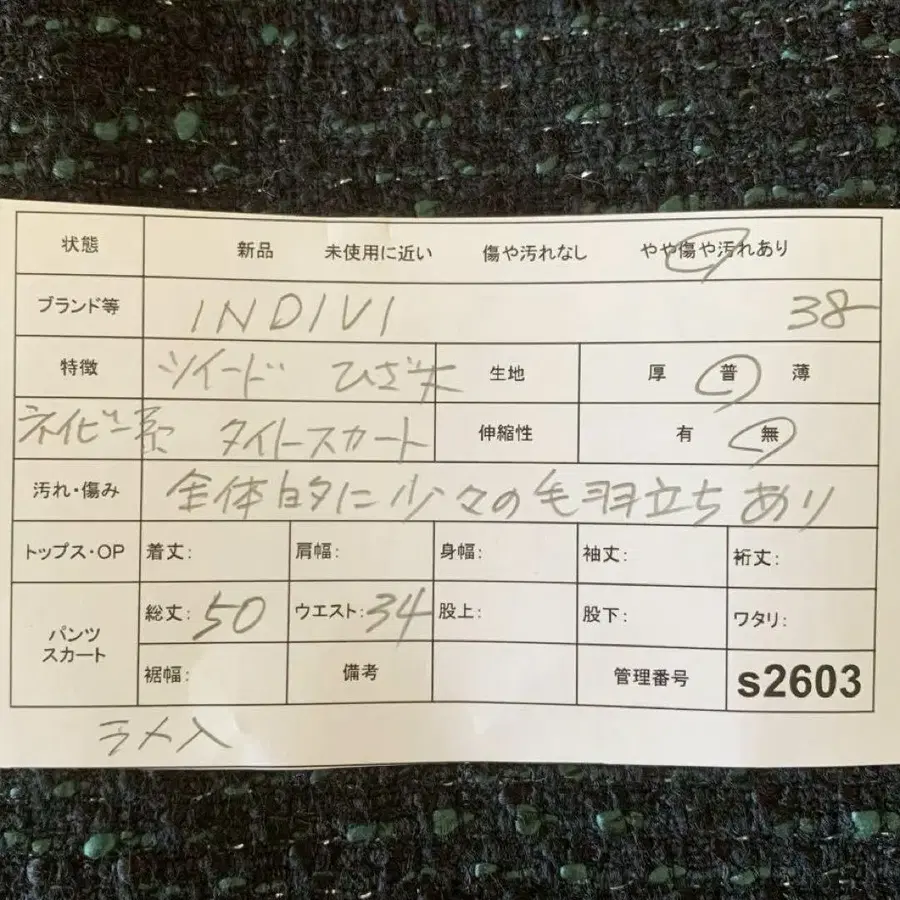 状態 新品 未使用に近い 傷や汚れなし やや傷や汚れあり
ブランド等 INDIVI 38
特徴 ツイード ひざ丈 生地 厚 普 薄
ネイビー系 タイトスカート 伸縮性 有 無
汚れ・傷み 全体的に少々の毛羽立ちあり
トップス・OP 着丈: 肩幅: 身幅: 袖丈: 裄丈:
パンツ スカート 総丈: 50 ウエスト: 34 股上: 股下: ワタリ:
裾幅: 備考 管理番号 s2603
ラメ入